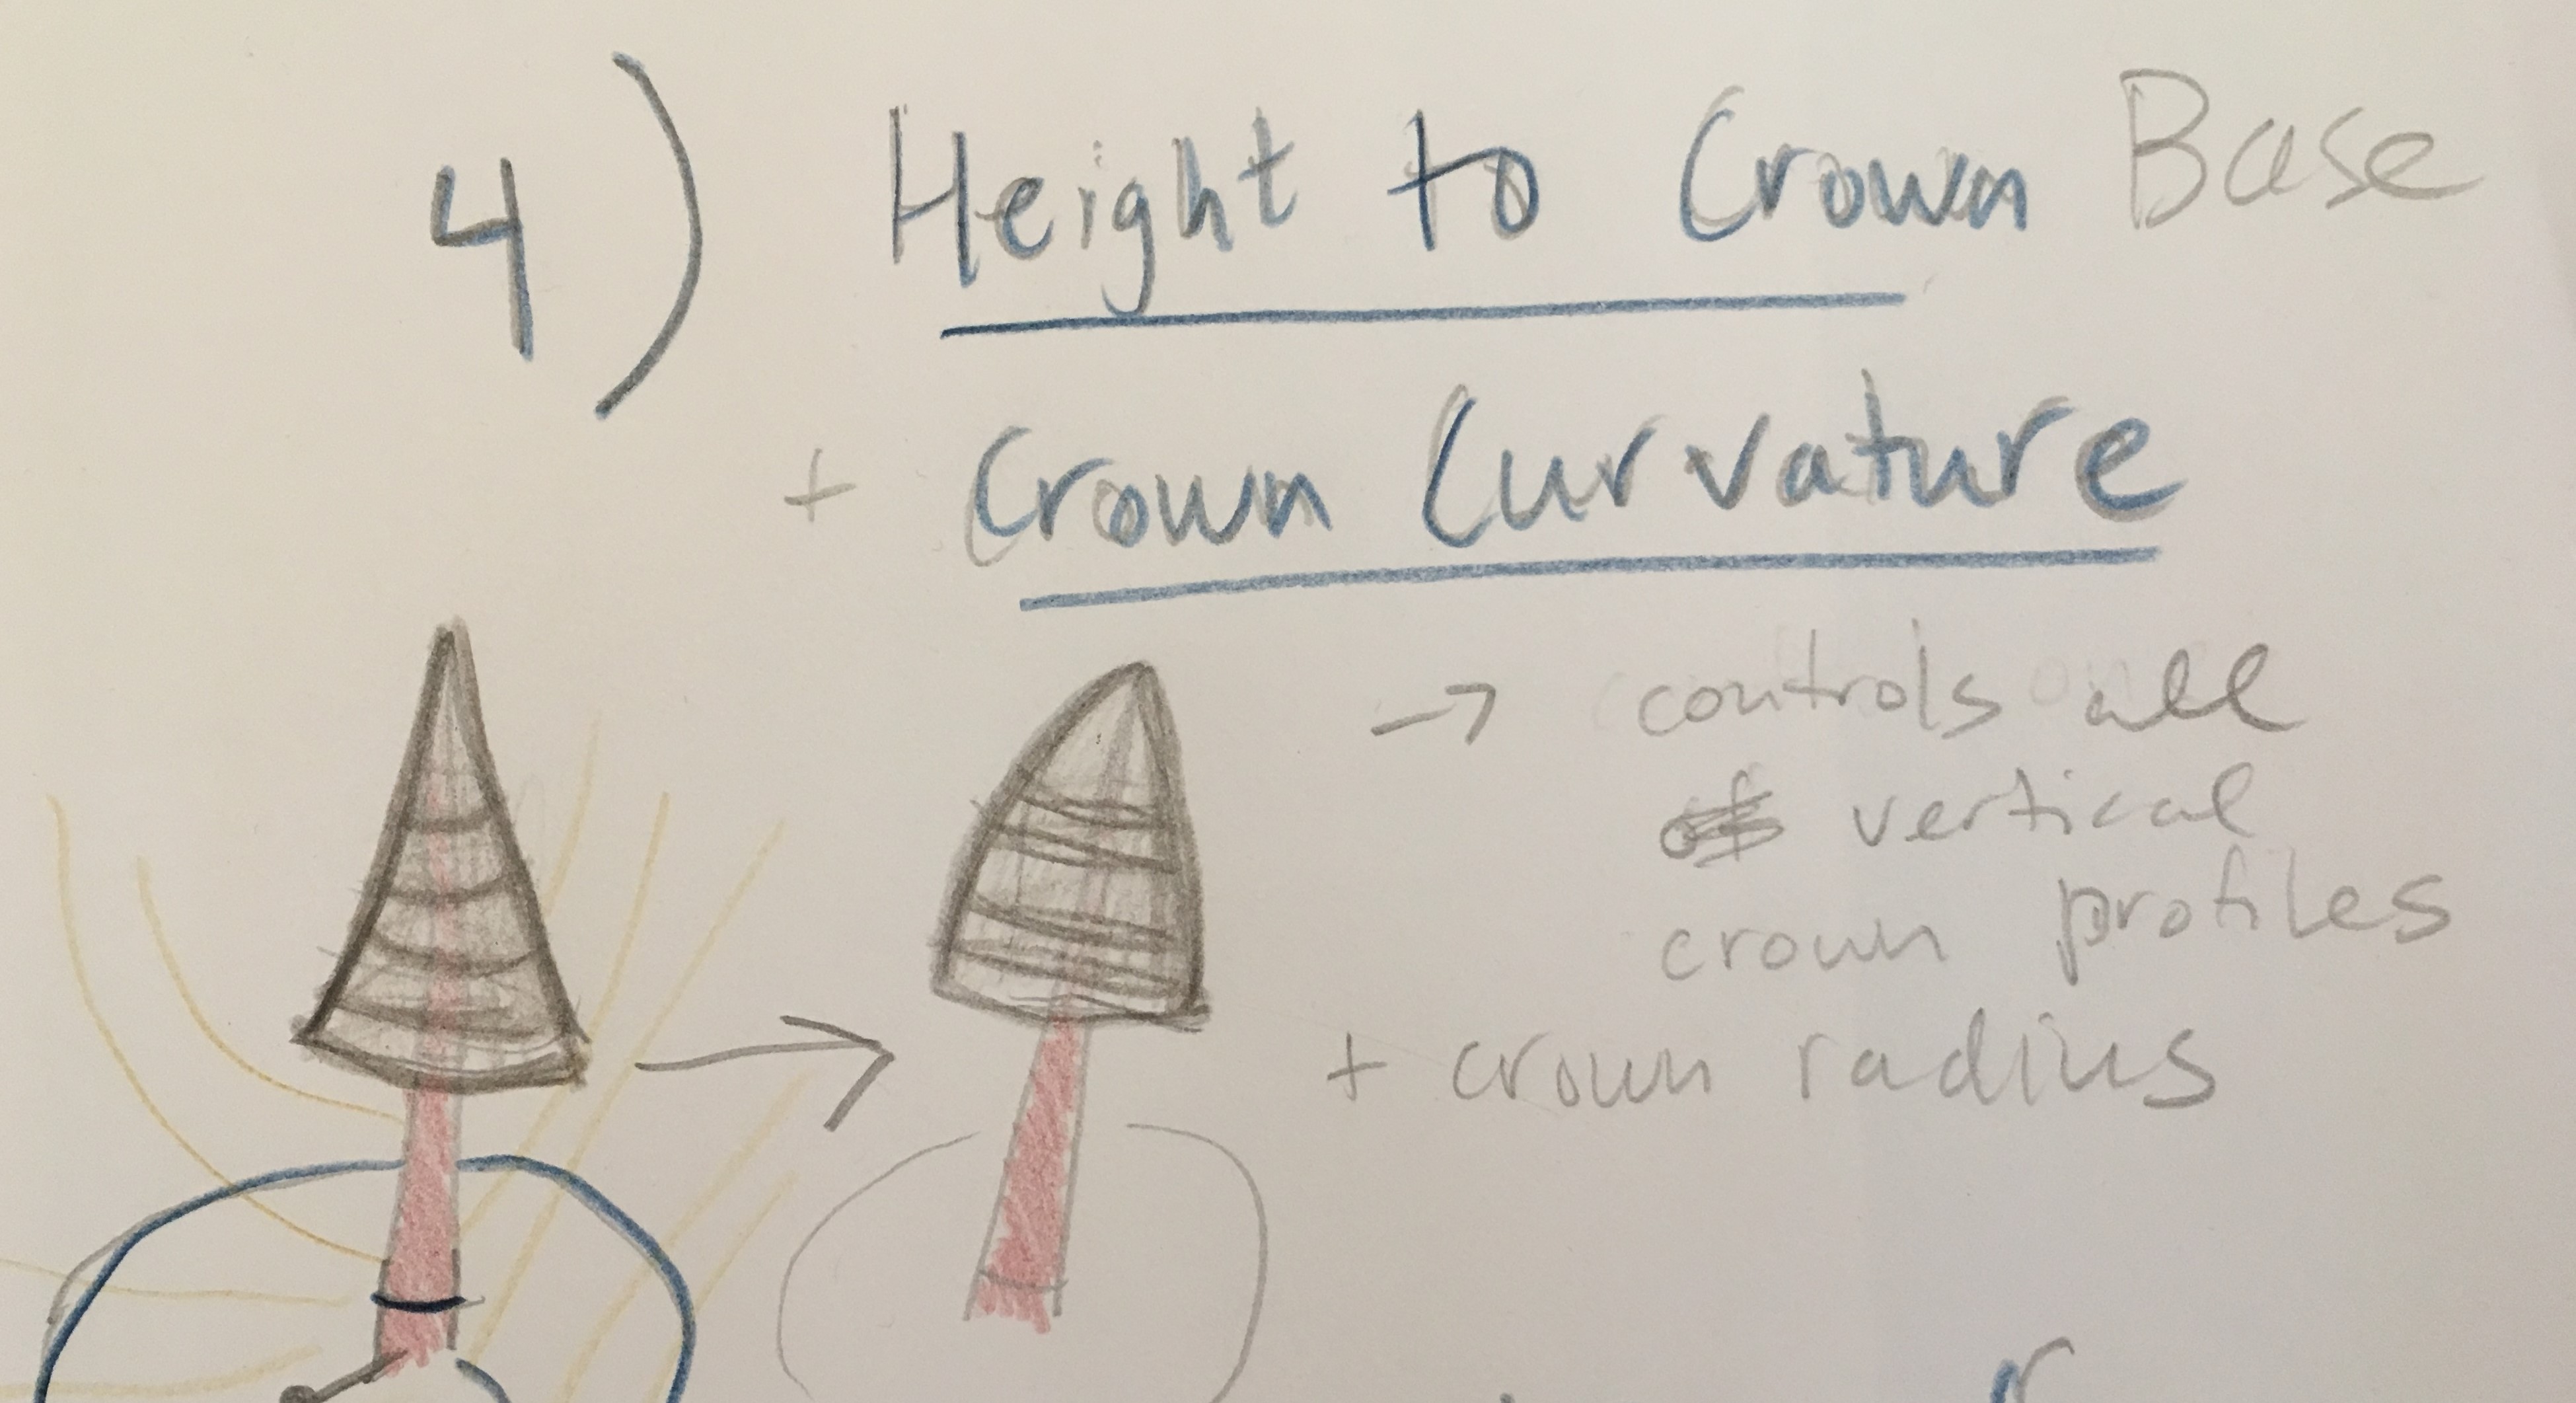 4) Height to Crown Base
+ Crown Curvature
→ controls all
vertical
crown profiles
+ crown radius